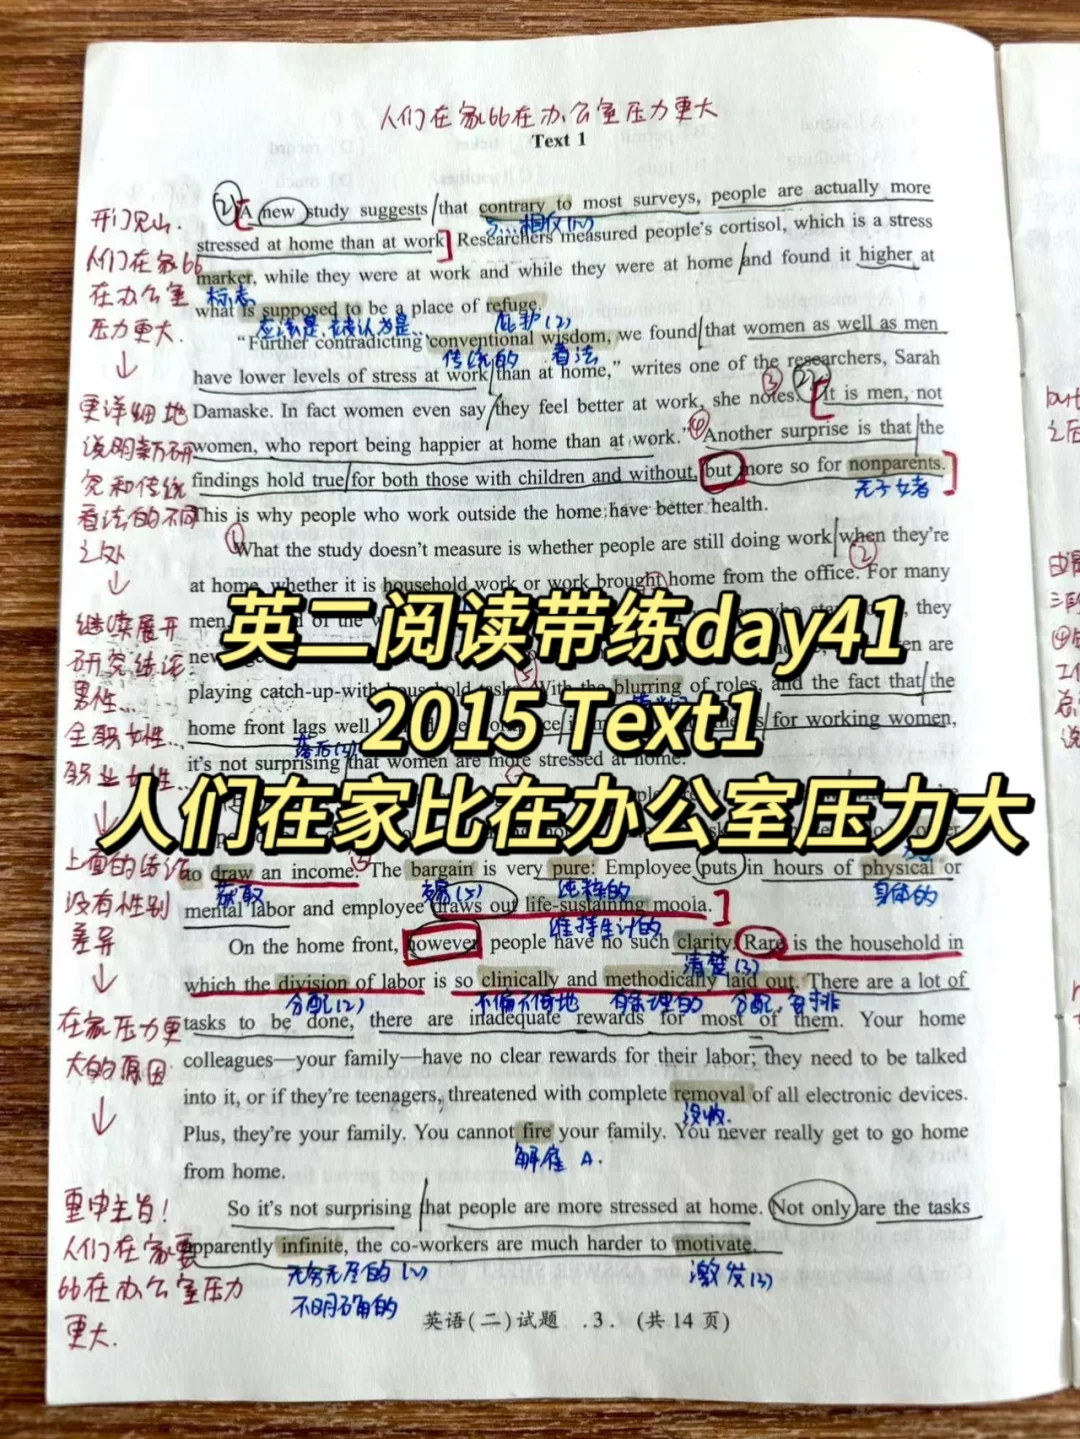 人们在家比在办公室压力更大
Text 1
A new study suggests that contrary to most surveys, people are actually more
stressed at home than at work. Researchers measured people's cortisol, which is a stress
marker, while they were at work and while they were at home and found it higher at
what is supposed to be a place of refuge.
"Further contradicting conventional wisdom, we found that women as well as men
have lower levels of stress at work than at home," writes one of the researchers, Sarah
Damaske. In fact women even say they feel better at work, she notes. "It is men, not
women, who report being happier at home than at work." Another surprise is that the
findings hold true for both those with children and without, but more so for nonparents.
This is why people who work outside the home have better health.
What the study doesn't measure is whether people are still doing work when they're
at home, whether it is household work or work brought home from the office. For many
men, of the they
en are
playing catch-up-with household tasks. With the blurring of roles, and the fact that the
home front lags well for working women,
it's not surprising that women are more stressed at home.
to draw an income. The bargain is very pure: Employee puts in hours of physical or
mental labor and employee draws out life-sustaining moola.
On the home front, however, people have no such clarity. Rare is the household in
which the division of labor is so clinically and methodically laid out. There are a lot of
tasks to be done, there are inadequate rewards for most of them. Your home
colleagues—your family—have no clear rewards for their labor; they need to be talked
into it, or if they're teenagers, threatened with complete removal of all electronic devices.
Plus, they're your family. You cannot fire your family. You never really get to go home
from home.
So it's not surprising that people are more stressed at home. Not only are the tasks
apparently infinite, the co-workers are much harder to motivate.
英语(二)试题 .3. (共14页)
英二阅读带练day41
2015 Text1
人们在家比在办公室压力大
开门见山.
人们在家比
在办公室
压力更大.
↓
更详细地
说明新研
究和传统
看法的不同
之处
↓
继续展开
研究结论:
男性...
全职女性...
职业女性...
↓
上面的结论
没有性别
差异
↓
在家压力更
大的原因
↓
重申主旨!
人们在家要
比在办公室压力
更大.
与...相反(2)
标志
应该是,被认为是...
庇护(2)
传统的
看法
无子女者
落后(3)
获取
交易(5)
纯粹的
身体的
维持生计的
清楚(3)
分配(2)
不偏不倚地
有条理的
分配,安排
没收.
解雇 A.
无穷无尽的(2)
不明确的
激发(3)